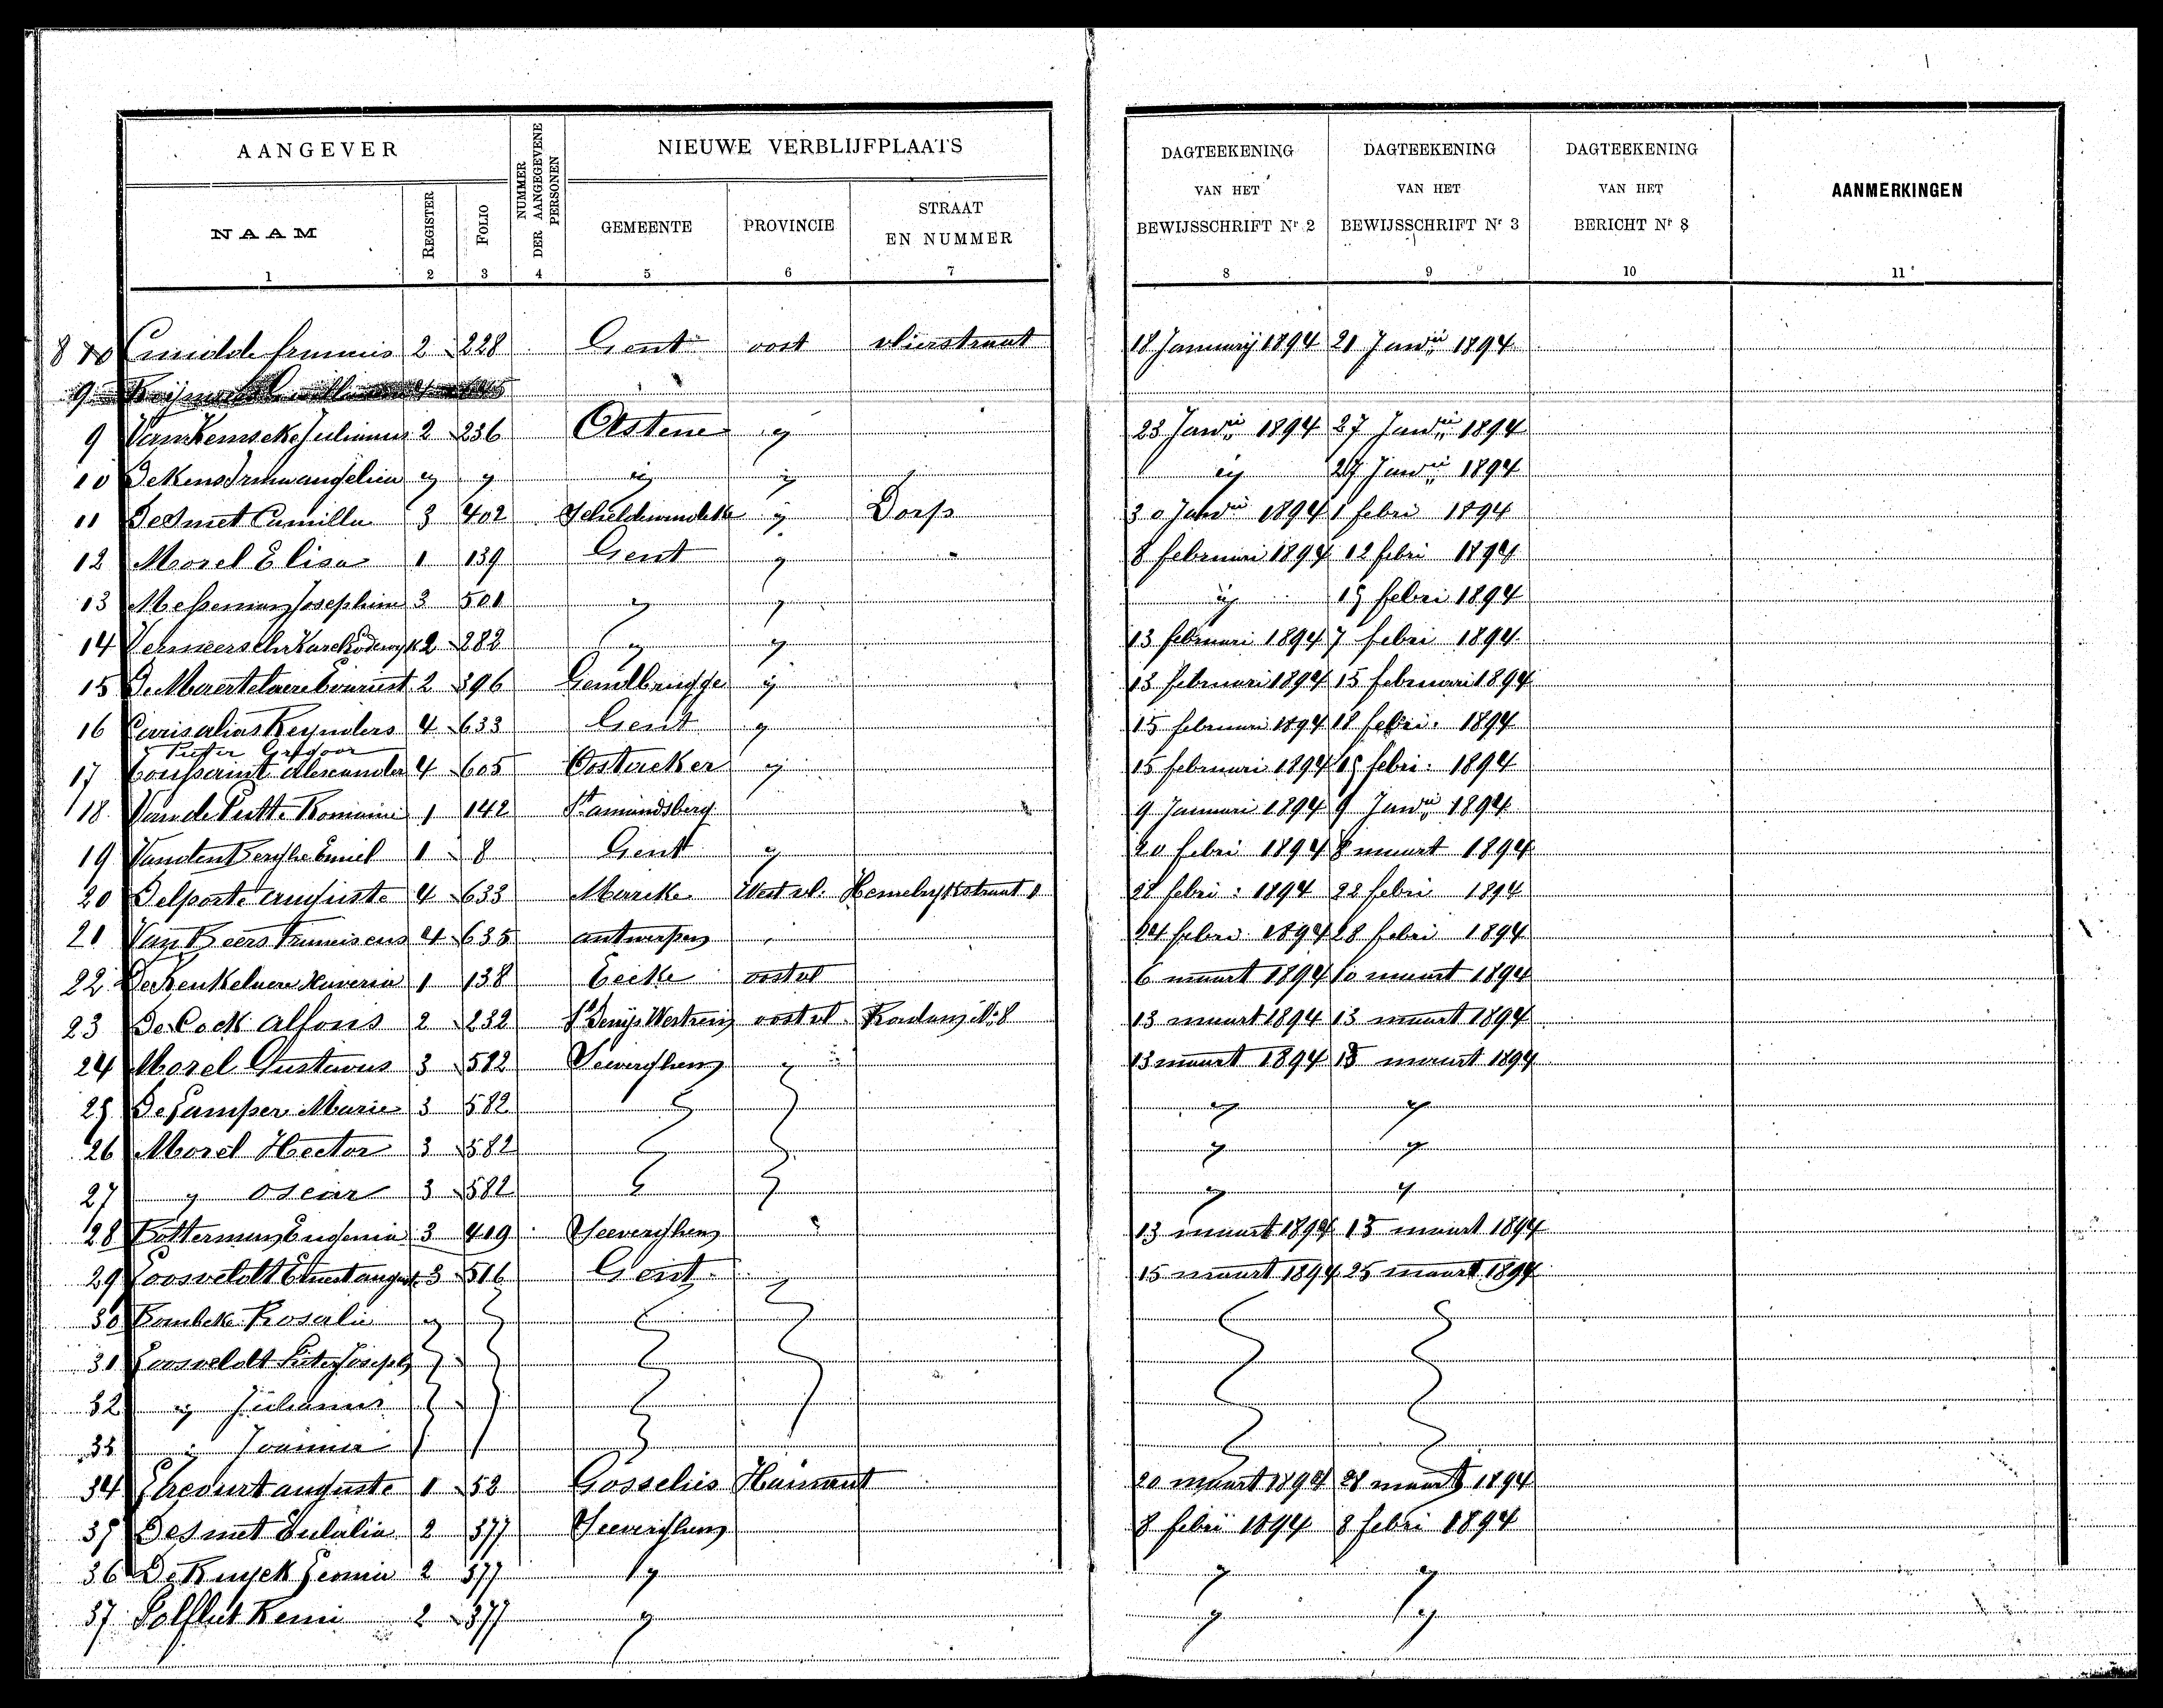 AANGEVER
NUMMER DER AANGEGEVENE PERSONEN
NIEUWE VERBLIJFPLAATS
DAGTEEKENING VAN HET BEWIJSSCHRIFT Nr 2
DAGTEEKENING VAN HET BEWIJSSCHRIFT Nr 3
DAGTEEKENING VAN HET BERICHT Nr 8
AANMERKINGEN
NAAM REGISTER FOLIO GEMEENTE PROVINCIE STRAAT EN NUMMER
1 2 3 4 5 6 7 8 9 10 11
8 2 228 Gent oost vlierstraat 18 Januarij 1894 21 Janrii 1894
9
9 2 236 Astene ij 23 Janrii 1894 27 Janrii 1894
10 ij ij ij ij ij 27 Janrii 1894
11 De Smet Camilla 3 402 Scheldewindeke ij Dorp 30 Janrii 1894 1 febri 1894
12 Morel Elisa 1 139 Gent ij 8 februari 1894 12 febri 1894
13 Josephine 3 501 ij ij ij 19 febri 1894
14 Vermeersch Karel Lodewyk 2 282 ij ij 13 februari 1894 7 febri 1894
15 De Maertelaere 2 396 Gendbrugge ij 13 februari 1894 15 februari 1894
16 alias Reynders 4 633 Gent ij 15 februari 1894 18 febri. 1894
Pieter Gregoor
17 Toussaint Alexander 4 605 Oostacker ij 15 februari 1894 19 febri: 1894
18 Van de Putte Romanie 1 142 St amandsberg 9 Januari 1894 9 Janrii 1894
19 Vanden Berghe Emiel 1 8 Gent ij 20 febri 1894 8 maart 1894
20 Delporte auguste 4 633 Marcke West vl. 1 28 febri: 1894 22 febri 1894
21 Van Beers Franciscus 4 635 antwerpen 24 febri 1894 28 febri 1894
22 De Keukelaere Xaveria 1 138 Eecke oost vl 6 maart 1894 10 maart 1894
23 De Cock alfons 2 232 St Denijs Westrem oost vl. No 8 13 maart 1894 13 maart 1894
24 Morel Gustavus 3 582 Seeverghem ij 13 maart 1894 15 maart 1894
25 Marie 3 582 ij ij
26 Morel Hector 3 582 ij ij
27 ij oscar 3 582 ij ij
28 Botterman Eugenia 3 419 Seeverghem 13 maart 1894 15 maart 1894
29 Goosveldt Ernest august 3 516 Gent ij 15 maart 1894 25 maart 1894
30 Rombeke Rosalie ij
31 Goosveldt Pieter Joseph
32 ij Julianus
33 ij Joanna
34 auguste 1 52 Gosselies Hainaut 20 maart 1894 28 maart 1894
35 De Smet Eulalia 2 377 Seeverghem 8 febri 1894 8 febri 1894
36 De Kuyck Leonia 2 377 ij ij ij
37 Polfliet Remi 2 377 ij ij ij